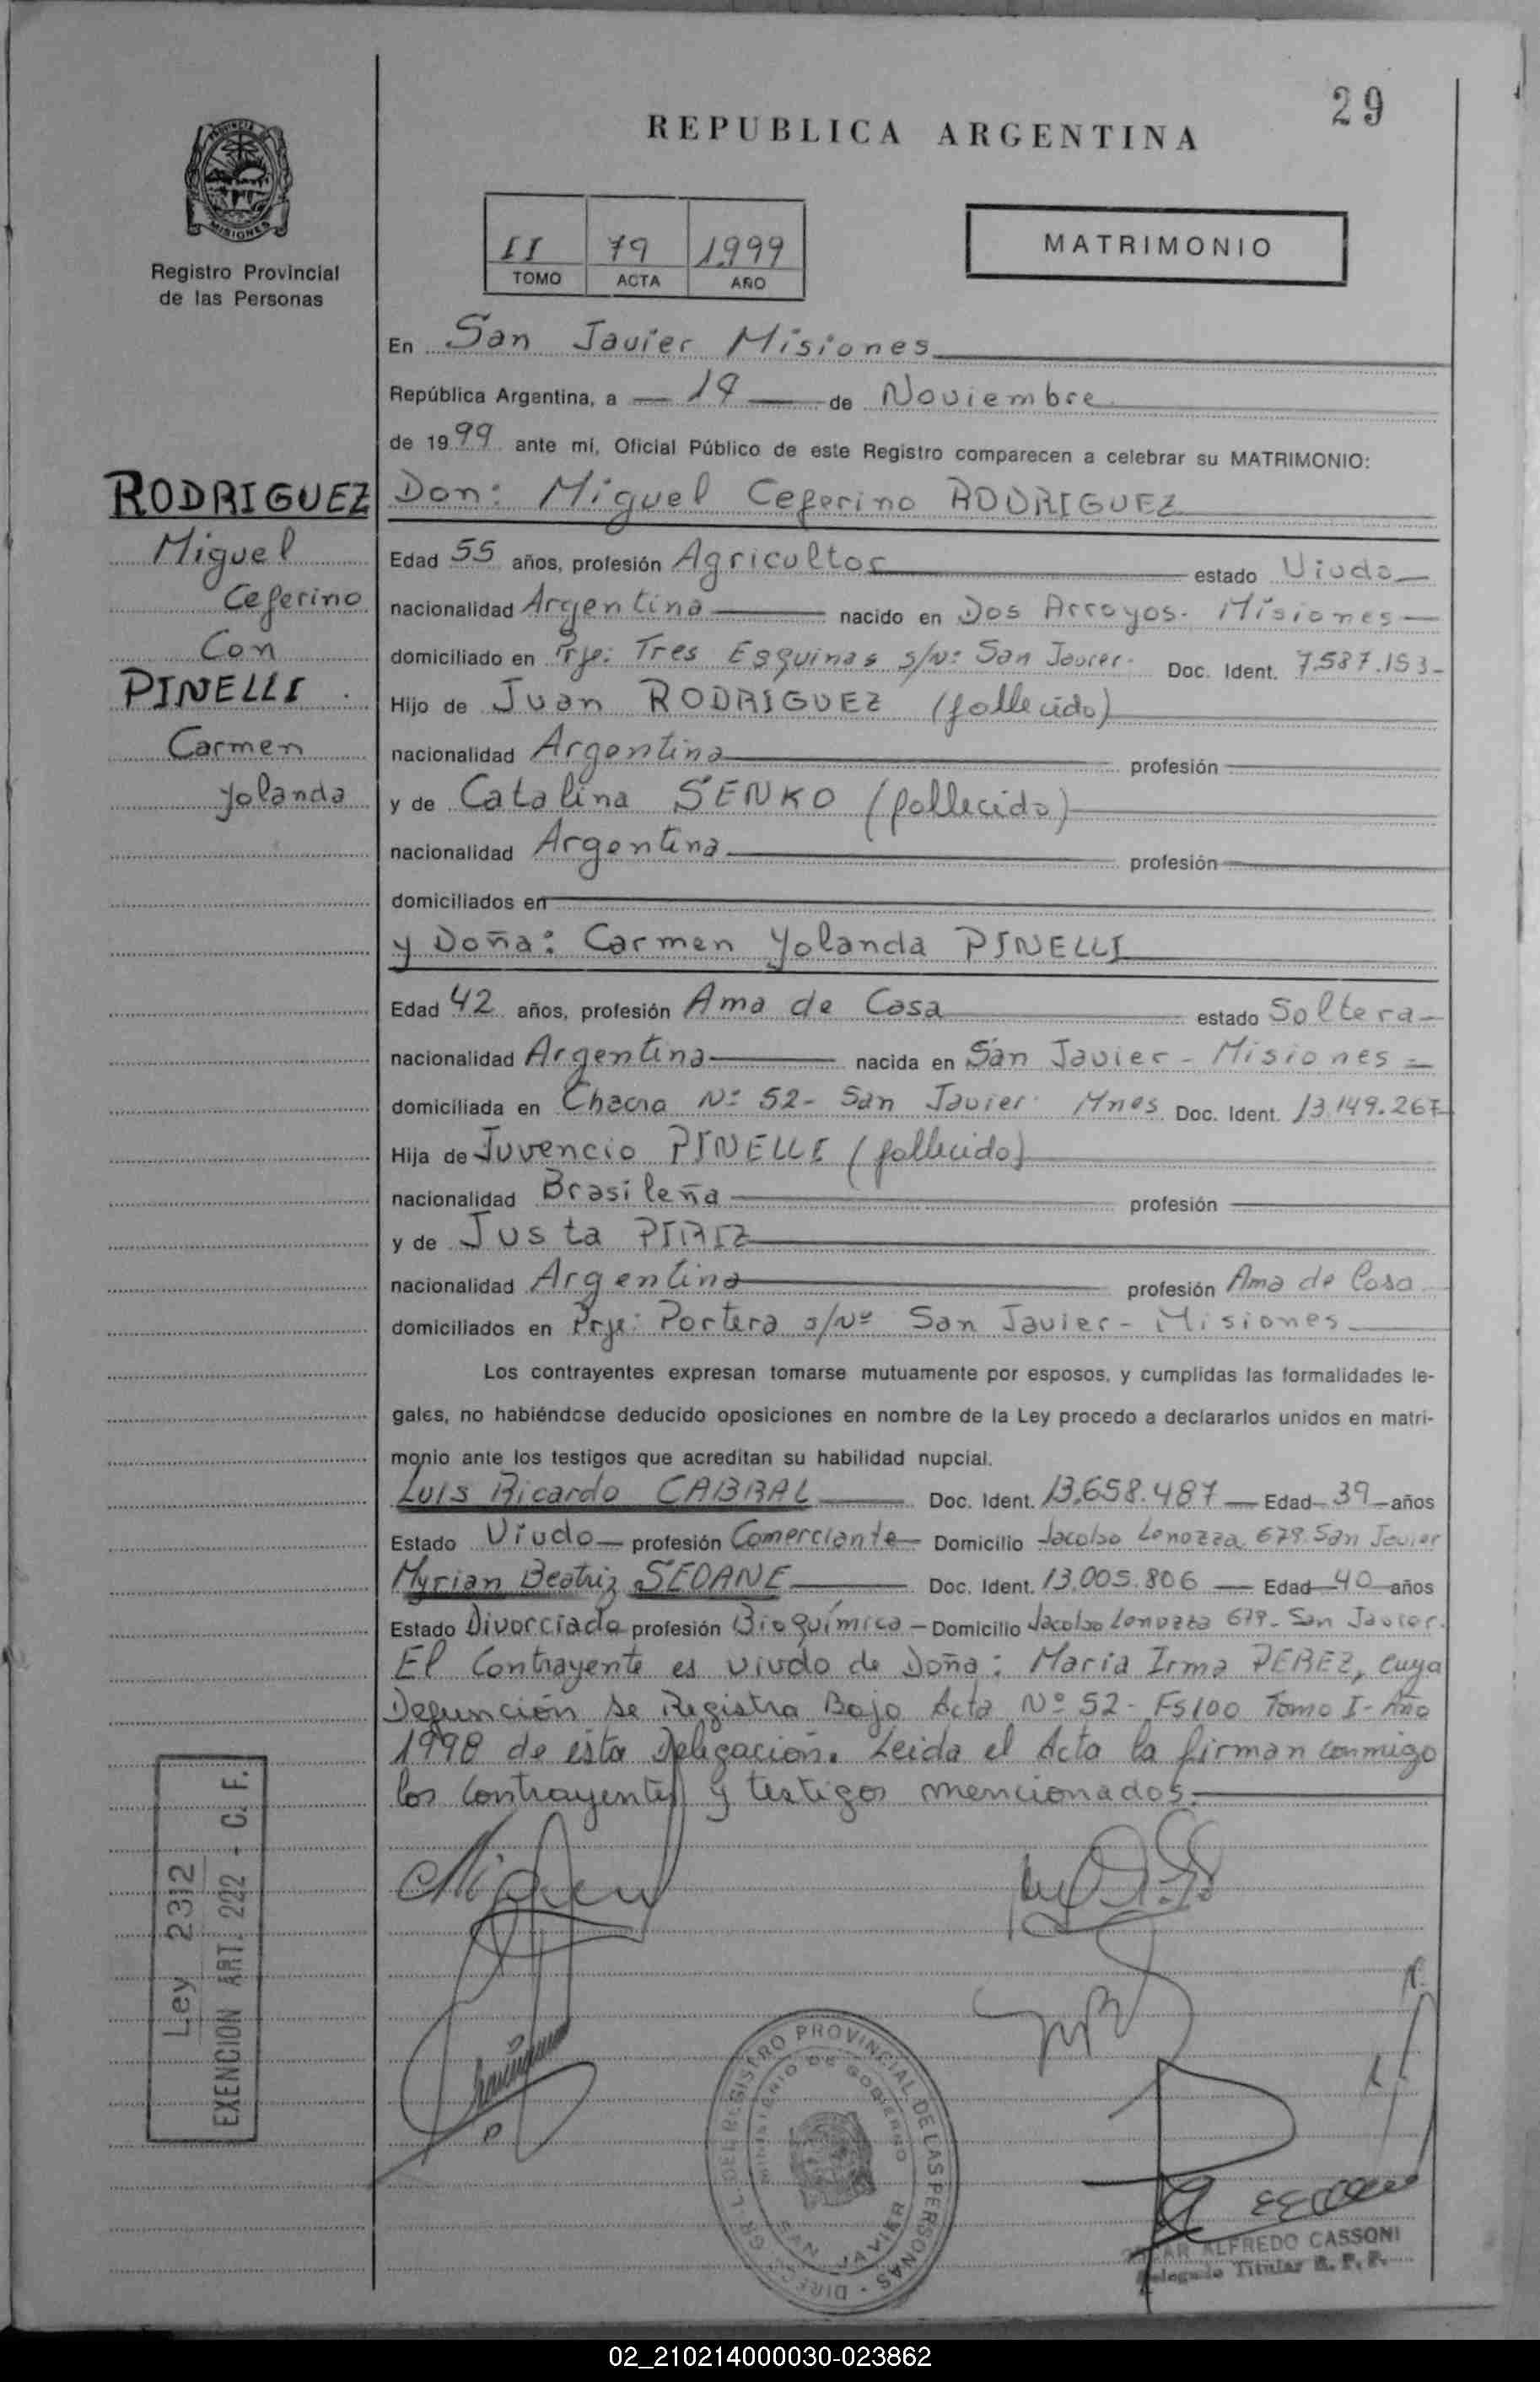 29
REPUBLICA ARGENTINA
PROVINCIA DE
MISIONES
Registro Provincial
de las Personas
II 79 1999
TOMO ACTA AÑO
MATRIMONIO
En San Javier Misiones
República Argentina, a — 19 — de Noviembre
de 1999 ante mí, Oficial Público de este Registro comparecen a celebrar su MATRIMONIO:
RODRIGUEZ
Miguel
Ceferino
Con
PINELLI
Carmen
Yolanda
Don: Miguel Ceferino RODRIGUEZ
Edad 55 años, profesión Agricultor estado Viudo
nacionalidad Argentina nacido en Dos Arroyos- Misiones
domiciliado en Prje: Tres Esquinas s/Nº San Javier- Doc. Ident. 7.587.153-
Hijo de Juan RODRIGUEZ (fallecido)
nacionalidad Argentina profesión
y de Catalina SENKO (fallecida)
nacionalidad Argentina profesión
domiciliados en
y Doña: Carmen Yolanda PINELLI
Edad 42 años, profesión Ama de Casa estado Soltera
nacionalidad Argentina nacida en San Javier - Misiones
domiciliada en Chacra Nº 52- San Javier- Mnes Doc. Ident. 13.149.267
Hija de Juvencio PINELLI (fallecido)
nacionalidad Brasileña profesión
y de Justa PIRIZ
nacionalidad Argentina profesión Ama de Casa
domiciliados en Prje: Portera s/Nº San Javier - Misiones
Los contrayentes expresan tomarse mutuamente por esposos, y cumplidas las formalidades le-
gales, no habiéndose deducido oposiciones en nombre de la Ley procedo a declararlos unidos en matri-
monio ante los testigos que acreditan su habilidad nupcial.
Luis Ricardo CABRAL Doc. Ident. 13.658.487 Edad 39 años
Estado Viudo profesión Comerciante Domicilio Jacobo 679. San Javier
Myrian Beatriz SEOANE Doc. Ident. 13.005.806 Edad 40 años
Estado Divorciada profesión Bioquímica Domicilio Jacobo 679- San Javier.
El Contrayente es viudo de Doña: Maria Irma PEREZ, cuya
Defunción se Registra Bajo Acta Nº 52- Fs100 Tomo I- Año
1998 de esta Delegación. Leida el Acta la firman conmigo
los Contrayentes y testigos mencionados.
Ley 2312
EXENCION ART. 202 - C. F.
DIRECC. GRL. DEL REGISTRO PROVINCIAL DE LAS PERSONAS
MINISTERIO DE GOBIERNO
SAN JAVIER
ALFREDO CASSONI
Delegado Titular R. P. P.
02_210214000030-023862